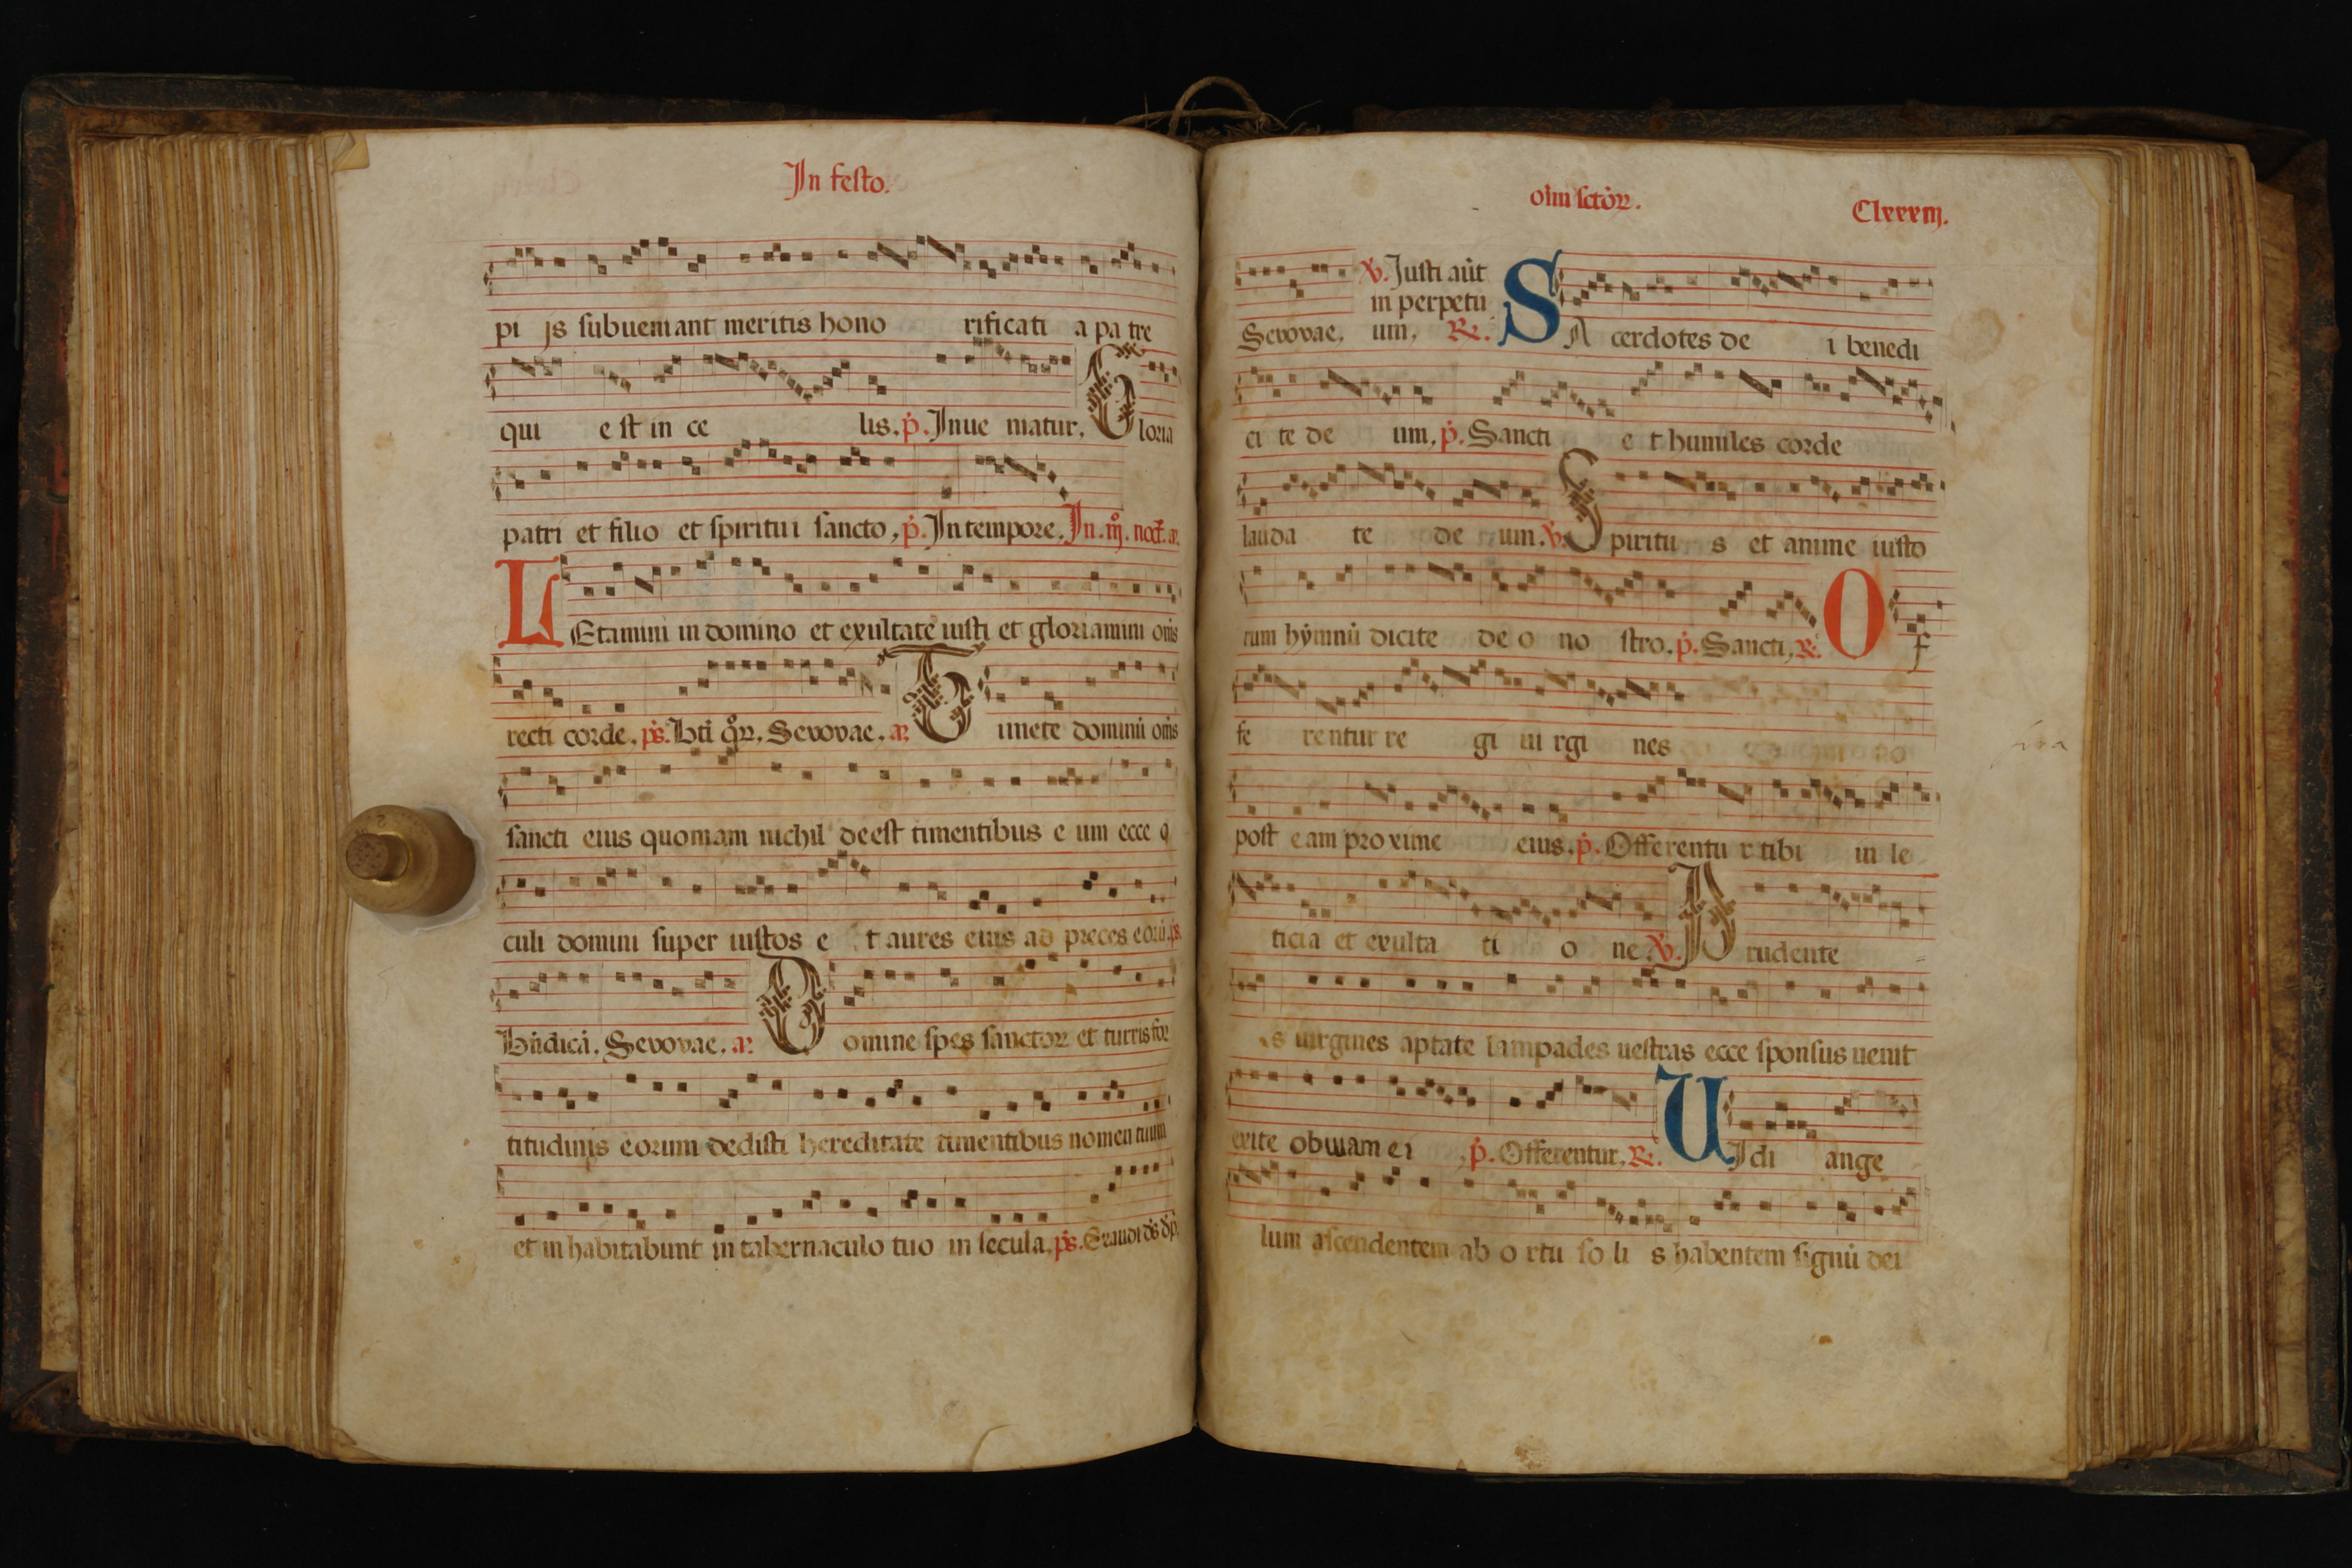 In festo.
pi js subueniant meritis hono rificati a pa tre
qui e st in ce lis. p̄. Inue niatur. Gloria
patri et filio et spiritui sancto, p̄. In tempore. In. iij. noct. a.
LEtamini in domino et exultate iusti et gloriamini om̄s
recti corde. ps. Bti qr̄. Seuouae. a. Timete dominū om̄s
sancti eius quoniam nichil deest timentibus e um ecce o
culi domini super iustos e t aures eius ad preces eorū. ps.
Bn̄dicā. Seuouae. a. Domine spes sanctoꝝ et turris for
titudinis eorum dedisti hereditate timentibus nomen tuum
et in habitabunt in tabernaculo tuo in secula. ps. Exaudi ds̄ dp̄.
oīm sctōꝝ. Clxxxiij.
℣. Iusti aūt
in perpetu
Seuouae. um, ℟. SA cerdotes de i benedi
ci te de um, p̄. Sancti e t humiles corde
lauda te de um. ℣. Spiritu s et anime iusto
rum hymnū dicite de o no stro. p̄. Sancti, ℟. Of
fe rentur re gi ui rgi nes
post eam proxime eius. p̄. Offerentu r tibi in le
ticia et exulta ti o ne. ℣. Prudente
s uirgines aptate lampades uestras ecce sponsus uenit
exite obuiam ei , p̄. Offerentur. ℟. UIdi ange
lum ascendentem ab o rtu so li s habentem signū dei